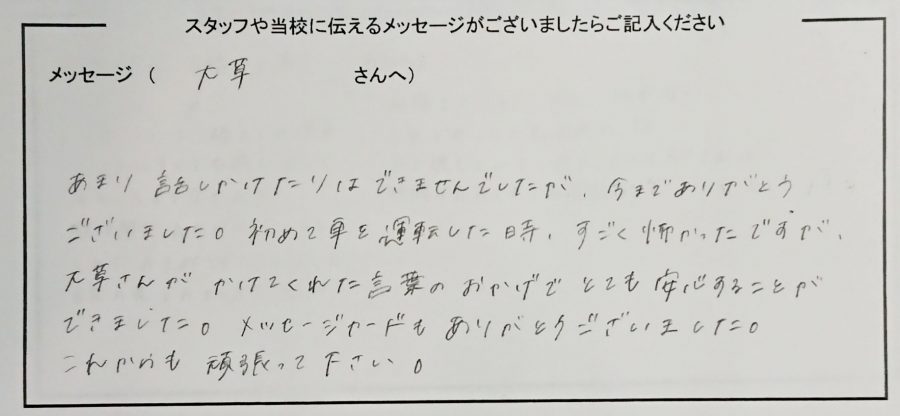 スタッフや当校に伝えるメッセージがございましたらご記入ください
メッセージ ( 大草 さんへ)
あまり 話しかけたりは できませんでしたが、今までありがとう
ございました。初めて車を運転した時、すごく怖かったですが、
大草さんが かけてくれた言葉の おかげで とても 安心することが
できました。メッセージカードも ありがとうございました。
これからも 頑張って下さい。